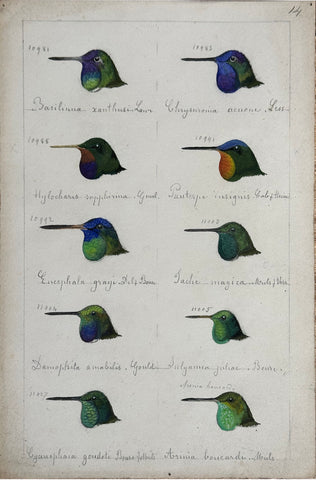 14
10981 10983
Basilinna xanthusi Lawr. Chrysuronia oenone Less
10988 10991
Hylocharis sapphirina. Gmel. Panterpe insignis Cab & Heine
10992 11003
Eucephala grayi Delt & Bourc. Tache magica. Muls & Verr.
11004 11005
Damophila amabilis. Gould. Juliamyia juliae. Bourc.
Arinia boucardi
11027
Cyanophaia goudoti Bourc Arinia boucardi. Muls.